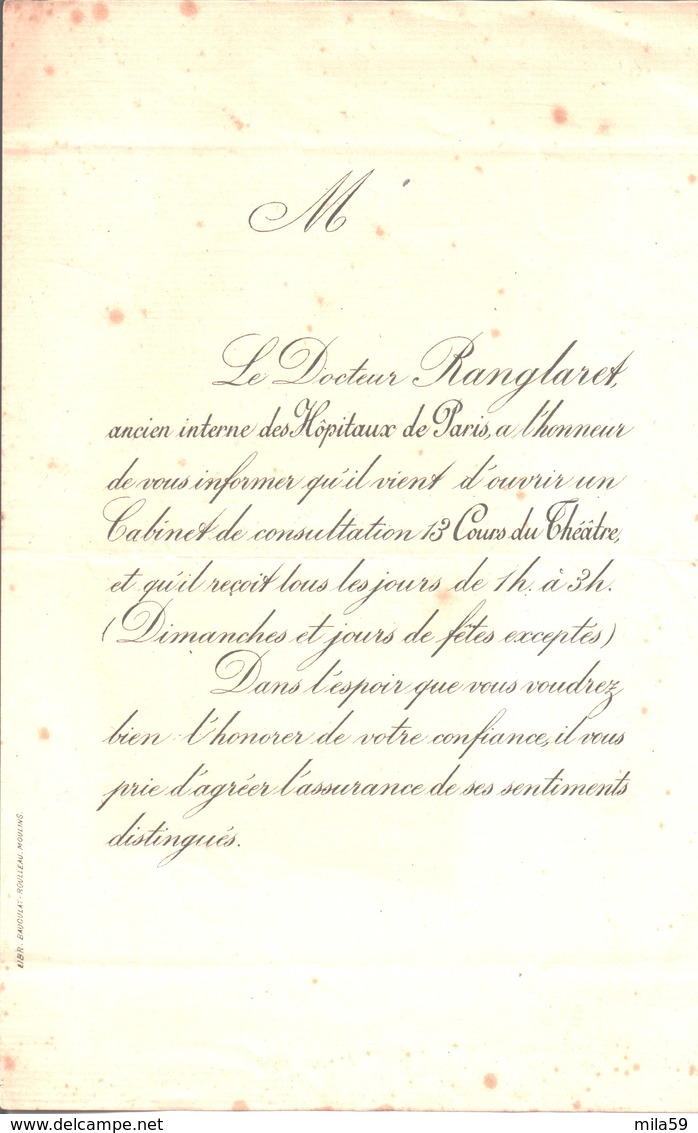 M
Le Docteur Ranglaret,
ancien interne des Hôpitaux de Paris, a l'honneur
de vous informer qu'il vient d'ouvrir un
Cabinet de consultation 13 Cours du Théâtre,
et qu'il reçoit tous les jours de 1h. à 3h.
(Dimanches et jours de fêtes exceptés)
Dans l'espoir que vous voudrez
bien l'honorer de votre confiance, il vous
prie d'agréer l'assurance de ses sentiments
distingués.
LIBR. BAUCULAT-ROULLEAU. MOULINS.
www.delcampe.net
mila59